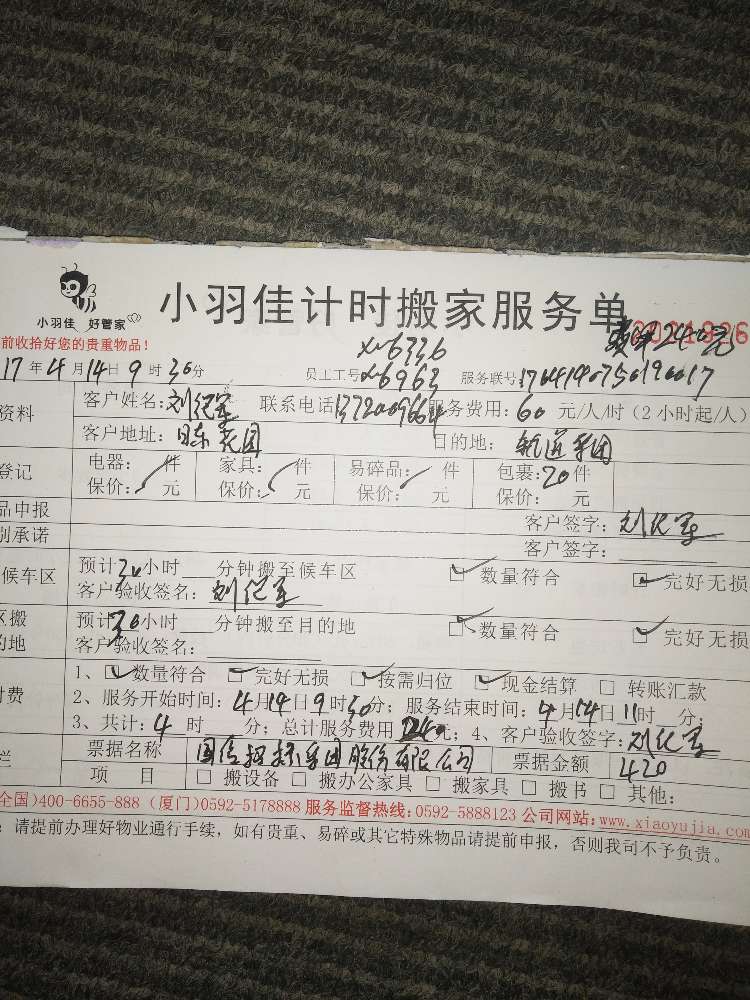 小羽佳计时搬家服务单
小羽佳 好管家
前收拾好您的贵重物品！
xm6336
17年4月14日9时30分 员工工号 xm6963 服务联号
资料 客户姓名：刘纪军 联系电话 服务费用：60元/人/时（2小时起/人）
客户地址：日东花园 目的地：
登记 电器： 件 家具： 件 易碎品： 件 包裹：20件
保价： 元 保价： 元 保价： 元 保价： 元
品申报 客户签字：刘纪军
别承诺 客户签字：
候车区 预计30小时 分钟搬至候车区 数量符合 完好无损
客户验收签名：刘纪军
区搬 预计30小时 分钟搬至目的地 数量符合 完好无损
的地 客户验收签名：
付费 1、数量符合 完好无损 按需归位 现金结算 转账汇款
2、服务开始时间：4月14日9时30分；服务结束时间：4月14日11时 分；
3、共计：4时 分；总计服务费用 元；4、客户验收签字：刘纪军
栏 票据名称 国信招标集团股份有限公司 票据金额 420
项 目 搬设备 搬办公家具 搬家具 搬书 其他：
全国)400-6655-888 (厦门)0592-5178888 服务监督热线：0592-5888123 公司网站：www.xiaoyujia.com
：请提前办理好物业通行手续，如有贵重、易碎或其它特殊物品请提前申报，否则我司不予负责。